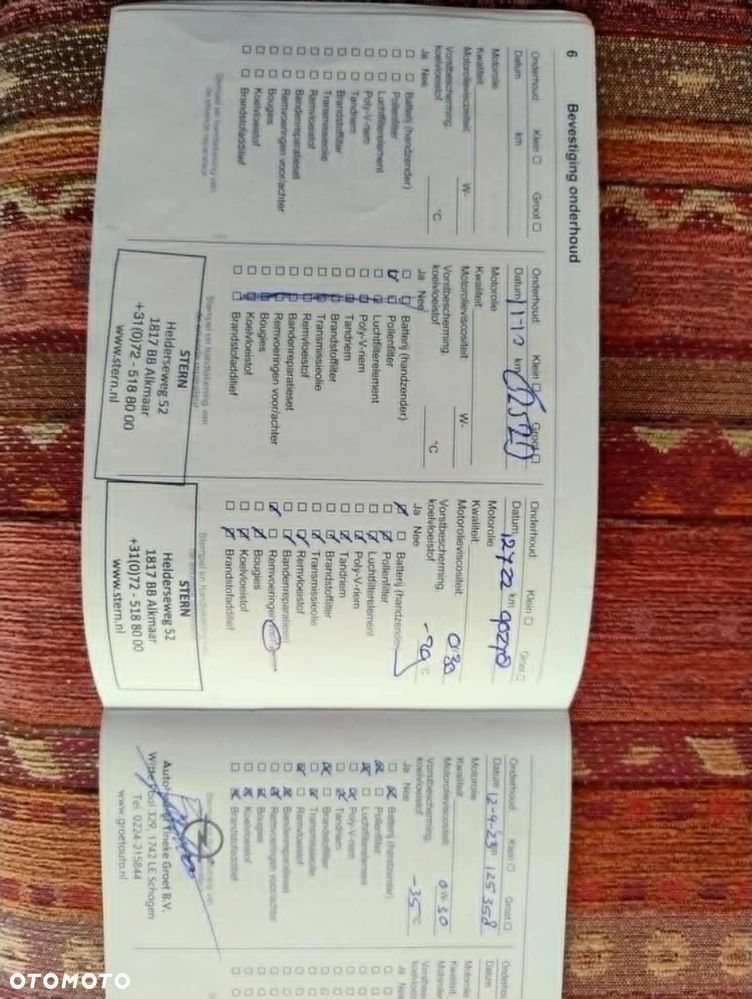 6 Bevestiging onderhoud
Onderhoud Klein Groot
Datum km
Motorolie
Kwaliteit
Motorolieviscositeit: W-
Vorstbescherming
koelvloeistof °C
Ja Nee
Batterij (handzender)
Pollenfilter
Luchtfilterelement
Poly-V-riem
Tandriem
Brandstoffilter
Transmissieolie
Remvloeistof
Bandenreparatieset
Remvoeringen voor/achter
Bougies
Koelvloeistof
Brandstofadditief
Stempel en handtekening van
Onderhoud Klein Groot
Datum km
Motorolie
Kwaliteit:
Motorolieviscositeit: W-
Vorstbescherming
koelvloeistof °C
Ja Nee
Batterij (handzender)
Pollenfilter
Luchtfilterelement
Poly-V-riem
Tandriem
Brandstoffilter
Transmissieolie
Remvloeistof
Bandenreparatieset
Remvoeringen voor/achter
Bougies
Koelvloeistof
Brandstofadditief
Stempel en handtekening van
STERN
Helderseweg 52
1817 BB Alkmaar
+31(0)72 - 518 80 00
www.stern.nl
Onderhoud Klein Groot
Datum km
Motorolie
Kwaliteit:
Motorolieviscositeit: 0W-30
Vorstbescherming
koelvloeistof °C
Ja Nee
Batterij (handzender)
Pollenfilter
Luchtfilterelement
Poly-V-riem
Tandriem
Brandstoffilter
Transmissieolie
Remvloeistof
Bandenreparatieset
Remvoeringen
Bougies
Koelvloeistof
Brandstofadditief
Stempel en handtekening
STERN
Helderseweg 52
1817 BB Alkmaar
+31(0)72 - 518 80 00
www.stern.nl
Onderhoud Klein Groot
Datum 12-4-23 125358
Motorolie
Kwaliteit:
Motorolieviscositeit: 0W-30
Vorstbescherming
koelvloeistof -35 °C
Ja Nee
Batterij (handzender)
Pollenfilter
Luchtfilterelement
Poly-V-riem
Tandriem
Brandstoffilter
Transmissieolie
Remvloeistof
Bandenreparatieset
Remvoeringen voor/achter
Bougies
Koelvloeistof
Brandstofadditief
Tineke Groet B.V.
329, 1742 LE Schagen
Tel. 0224-215844
www.groetauto.nl
Datum
OTOMOTO